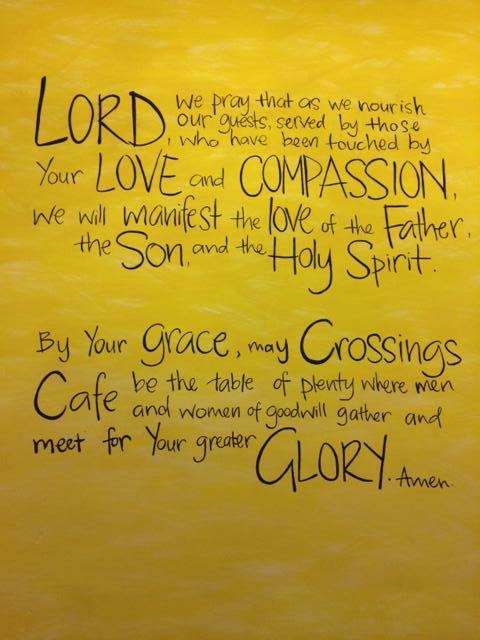 LORD, we pray that as we nourish
our guests, served by those
who have been touched by
Your LOVE and COMPASSION,
we will manifest the love of the Father,
the Son, and the Holy Spirit.
By Your grace, may Crossings
Cafe be the table of plenty where men
and women of goodwill gather and
meet for Your greater GLORY. Amen.